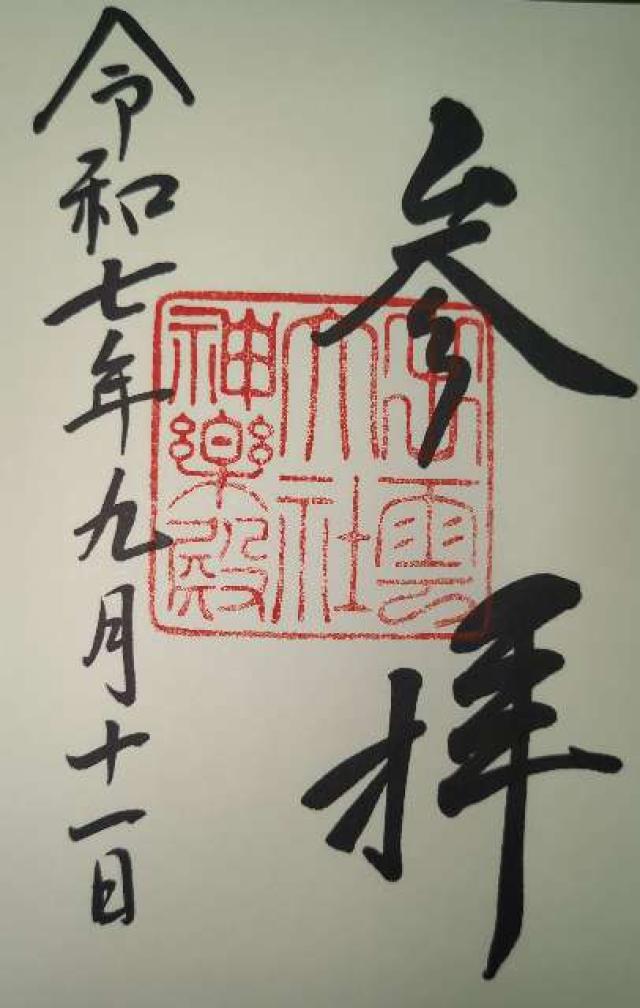 参拝
出雲
大社
神楽殿
令和七年九月十一日